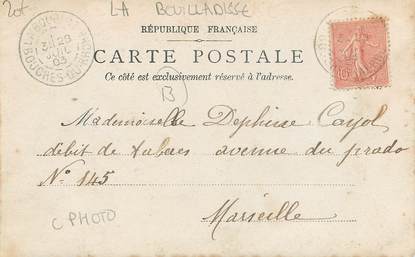 20f
LA BOUILLADISSE
RÉPUBLIQUE FRANÇAISE
CARTE POSTALE
Ce côté est exclusivement réservé à l'adresse.
B
Mademoiselle Delphine Cayol
débit de tabacs avenue du prado
N° 145
Marseille
C PHOTO